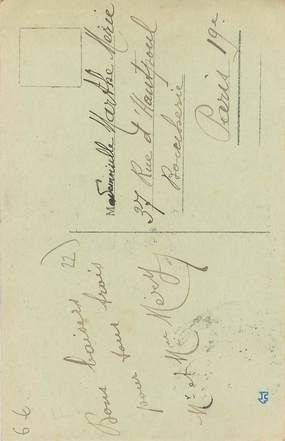 Mademoiselle Marthe Merie
37 Rue d'Hautpoul
Boucherie
Paris 19e
22)
Bons baisers
pour tous trois
Mr et Mme Méry
6-6